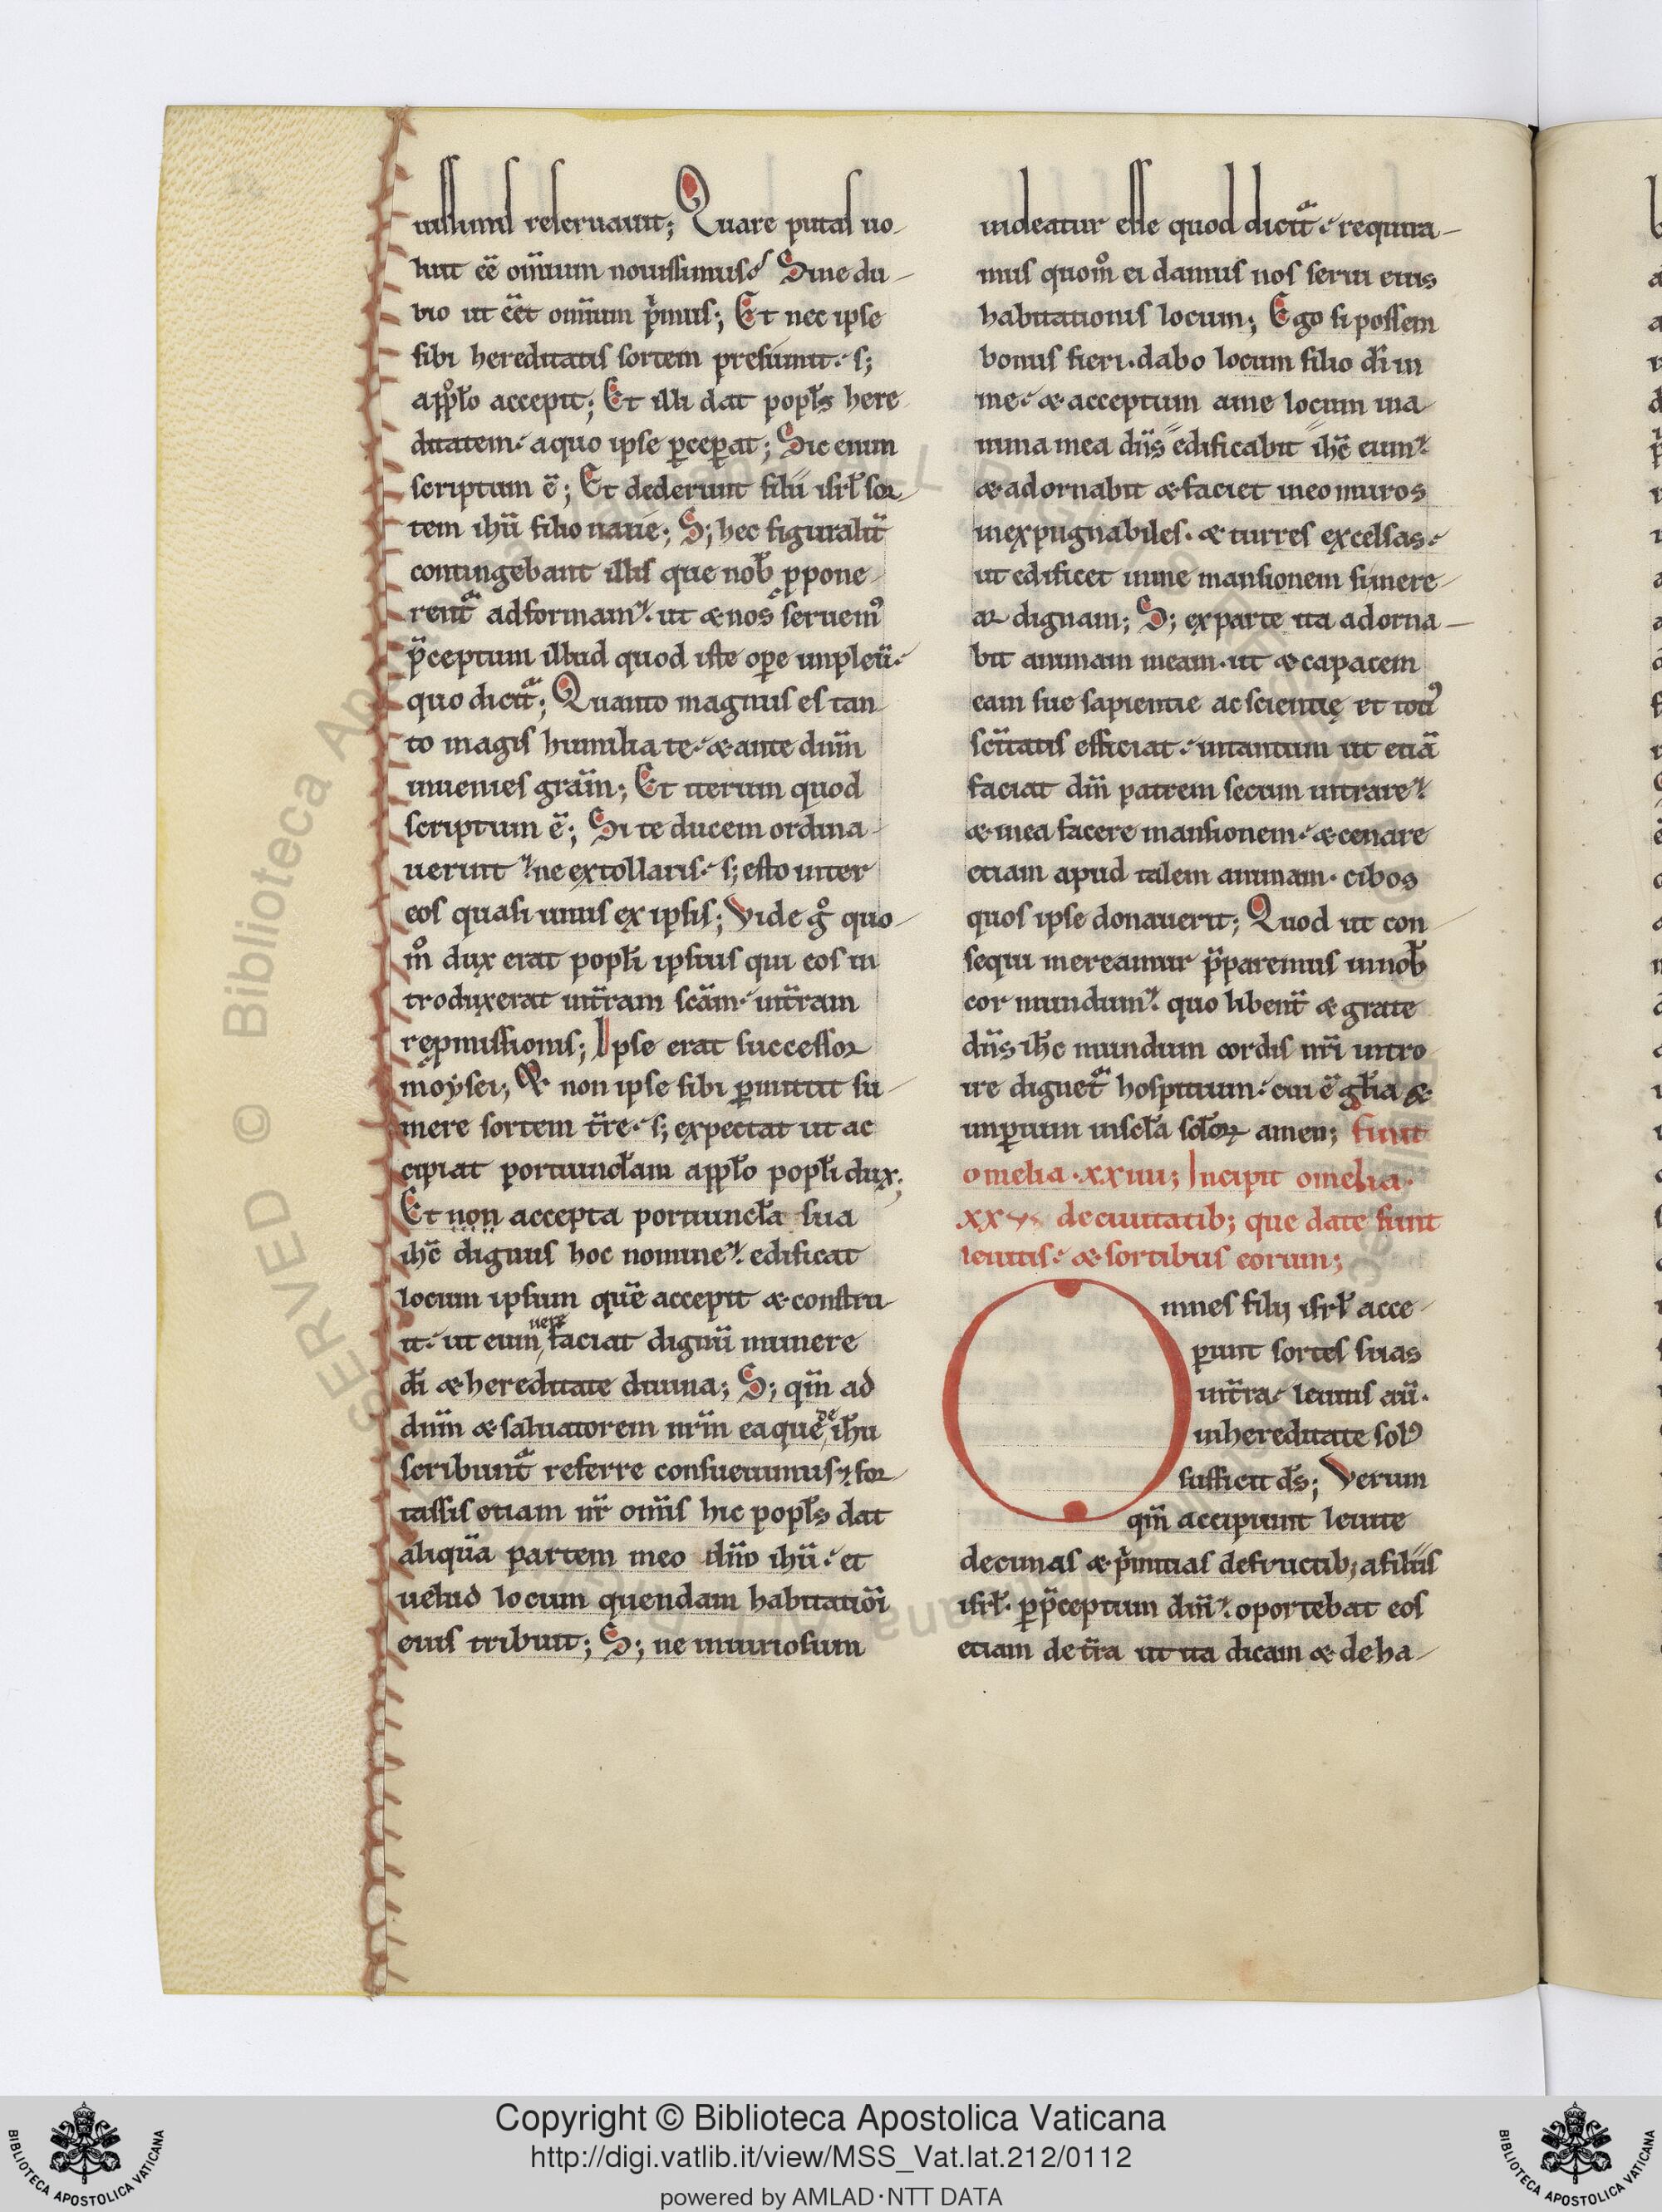 uissimis reseruauit; Quare putas uo-
luit eē om̄ium nouissimus? Sine du-
bio ut ēēt om̄ium p̍mus; Et nec ipse
sibi hereditatis sortem presumit. s;
a pp̄lo accepit; Et illi dat popl̄s here
ditatem. a quo ipse ꝑceꝑat; Sic enim
scriptum ē; Et dederunt filii isrl̄ sor-
tem ihū filio naue; S; hec figuralit̄
contingebant illis que nob̄ ppone-
rent᷑ ad formam. ut & nos seruem᷒
p̄ceptum illud quod iste oꝑe impleū.
quo dicit᷑; Quanto magnus es tan
to magis humilia te. & ante dn̄m
inuenies grām; Et iterum quod
scriptum ē; Si te ducem ordina-
uerint ne extollaris. s; esto inter
eos quasi unus ex ipsis; Vide gͦ quo-
mͦ dux erat popl̄i ipsius qui eos in
troduxerat int̄ram sc̄am. int̄ram
repmissionis; Ipse erat successor
moẏsei; & non ipse sibi ꝑmittit su-
mere sortem t̄re. s; expectat ut ac
cipiat portiuncl̄am a pp̄lo popl̄i dux;
Et non accepta portiuncl̄a sua
ihc̄ dignus hoc nomine. edificat
locum ipsum quē accepit & constru-
it. ut eum uere faciat dignū munere
dī & hereditate diuina; S; qm̄ ad
dn̄m & saluatorem nr̄m ea que de ihū
scribunt᷑ referre consueuimus. for-
tassis etiam nr̄ om̄is hic popl̄s dat
aliquā partem meo dn̄o ihū. et
uelud locum quendam habitatiōi
eius tribuit; S; ne iniuriosum
uideatur esse quod dicit᷑. requira-
mus quomͦ ei damus nos serui eius
habitationis locum; Ego si possem
bonus fieri. dabo locum filio dī in
me. & acceptum a me locum in a-
nima mea dn̄s edificabit ihc̄ eum.
& adornabit & faciet in eo muros
inexpugnabiles. & turres excelsas.
ut edificet in me mansionem si mere-
ar dignam; S; ex parte ita adorna-
bit animam meam. ut & capacem
eam sue sapientie ac scientię et toti᷒
sc̄itatis efficiat. in tantum ut etiā
faciat dm̄ patrem secum intrare.
& in ea facere mansionem. & cenare
etiam apud talem animam. cibos
quos ipse donauerit; Quod ut con-
sequi mereamur p̄paremus in nob̄
cor mundum. quo libent̄ & grate
dn̄s ihc̄ mundum cordis nr̄i intro
ire dignet᷑ hospitium. cui ē gl̄ia &
imꝑium in scl̄a scl̄oꝝ amen; finit
omelia. xxiiii; Incipit omelia.
xxv. de ciuitatib; que date sunt
leuitis. & sortibus eorum;
Omnes filij isrl̄ acce-
ꝑunt sortes suas
int̄ra. leuitis aū.
in hereditate sol᷒
sufficit ds̄; Verum
qm̄ accipiunt leuite
decimas & p̍mitias de fructib; a filiis
isrl̄. ꝑ p̄ceptum dn̄i. oportebat eos
etiam de t̄ra ut ita dicam & de ha-
Copyright © Biblioteca Apostolica Vaticana
http://digi.vatlib.it/view/MSS_Vat.lat.212/0112
powered by AMLAD·NTT DATA
BIBLIOTECA APOSTOLICA VATICANA
BIBLIOTECA APOSTOLICA VATICANA